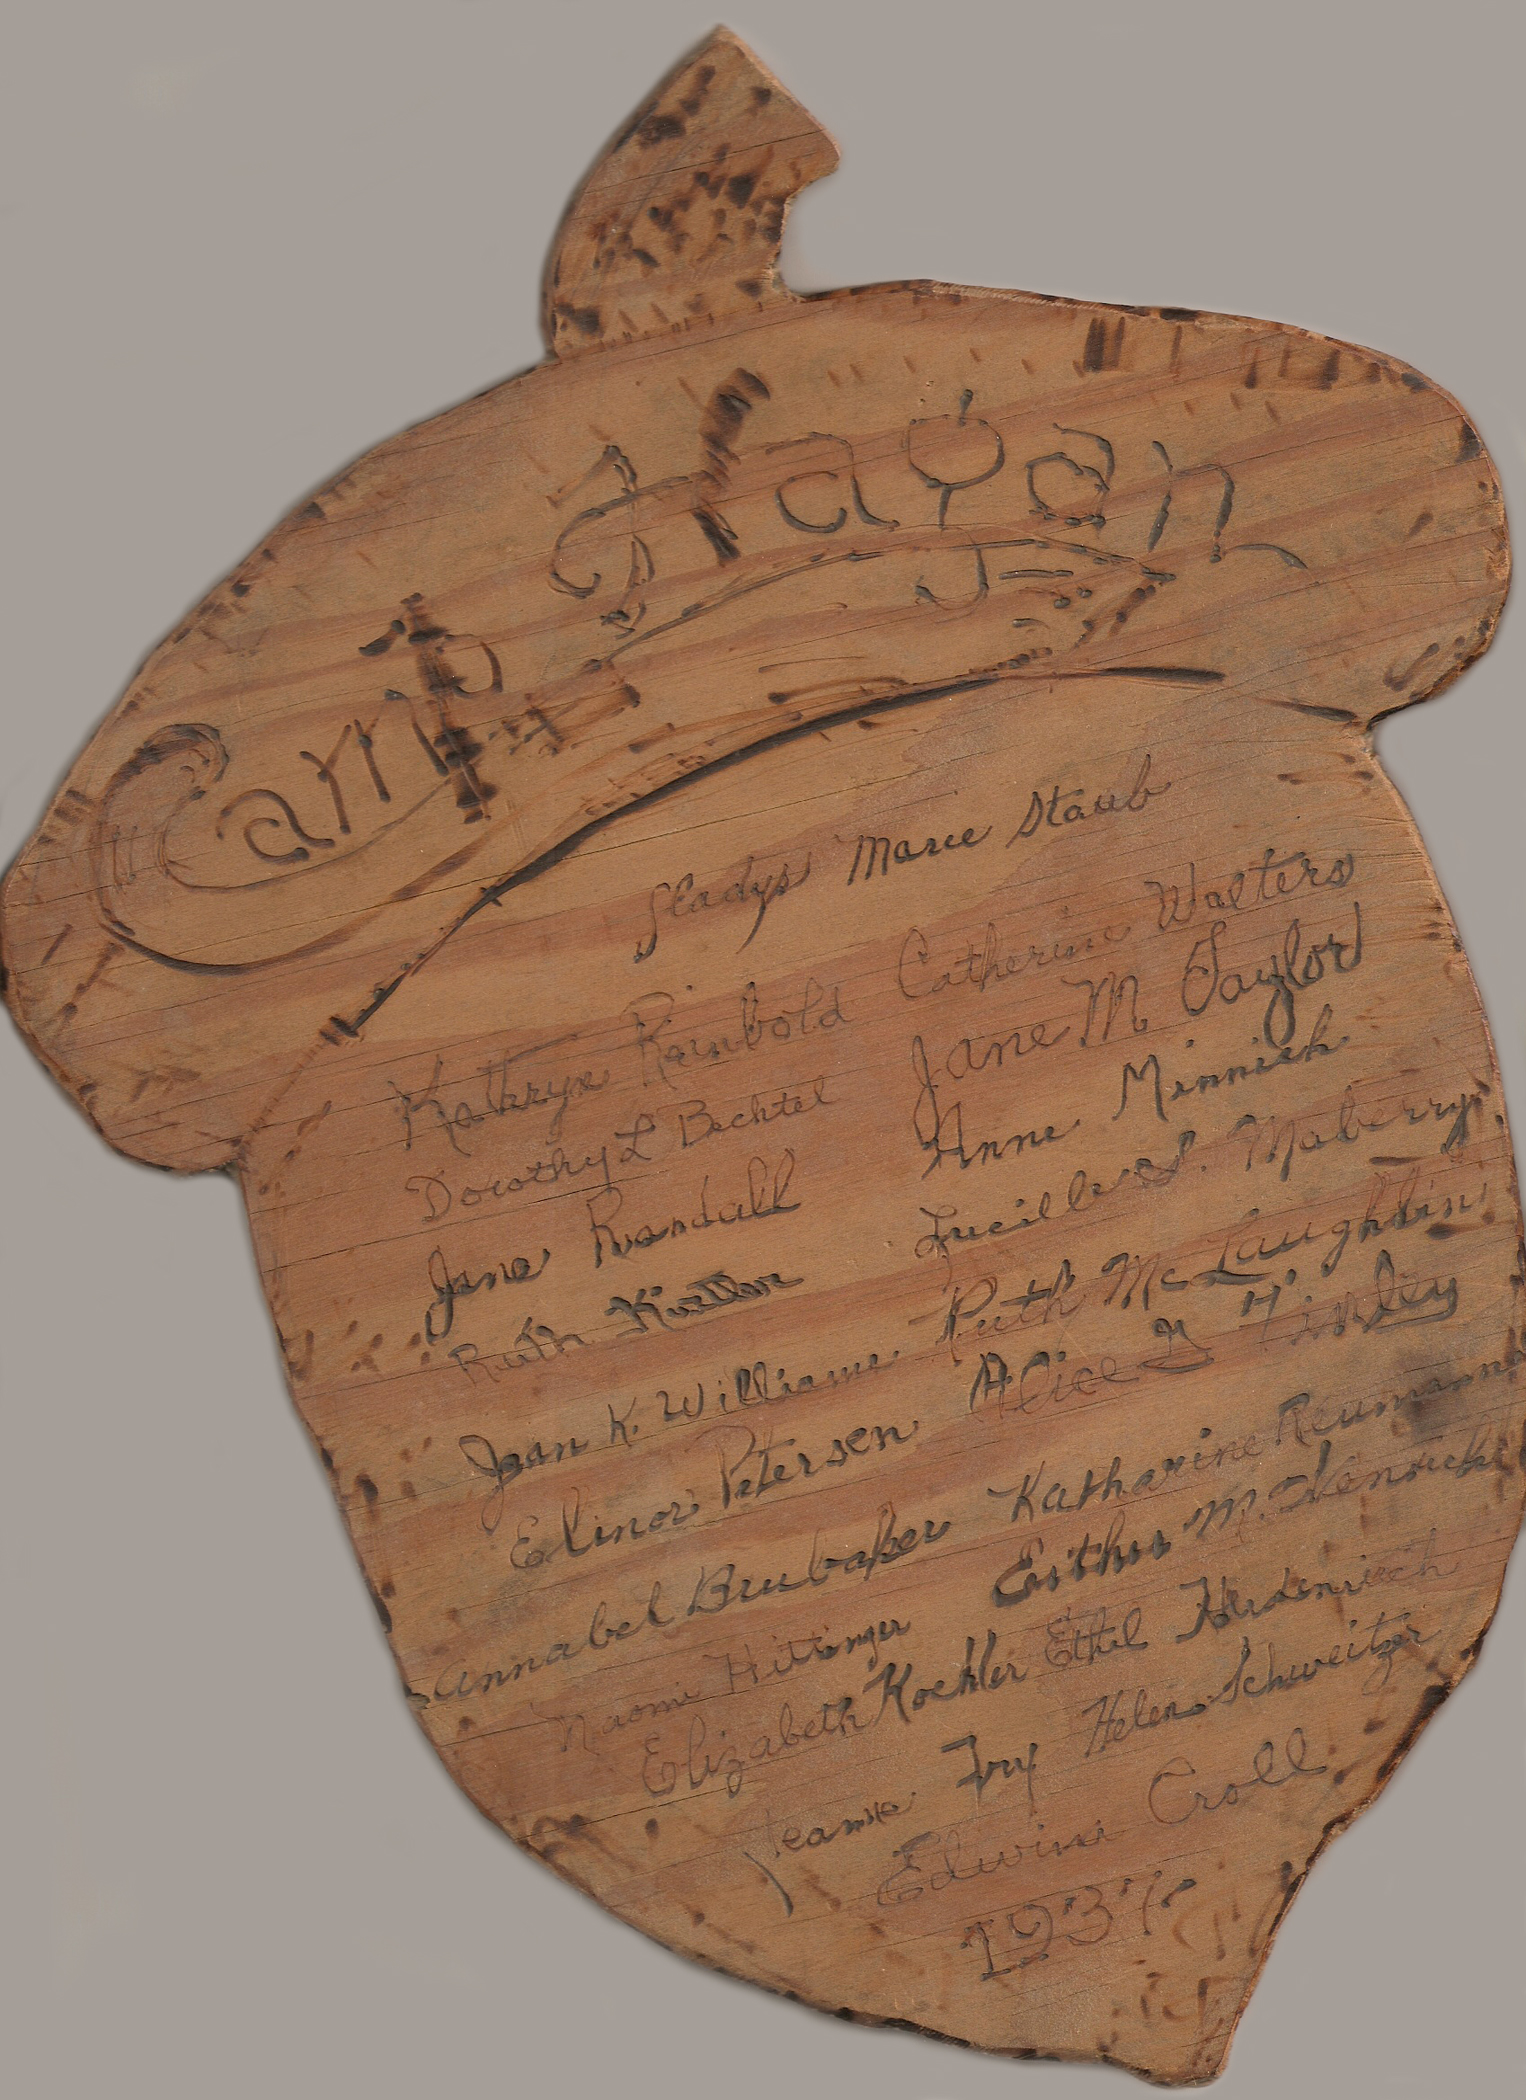 Camp Hagan
Gladys Marie Staub
Kathryn Rainbold Catherine Walters
Dorothy L Bechtel Jane M Taylor
Jane Randall Anne Minnich
Ruth Lucille S. Maberry
Jean K. Williams Ruth McLaughlin
Elinor Petersen Alice G H. Finley
Annabel Brubaker Katharine Reumann
Naomi Hittinger Esther M.
Elizabeth Koehler Ethel Heidenreich
Jeanne Fry Helen Schweitzer
Edwina Croll